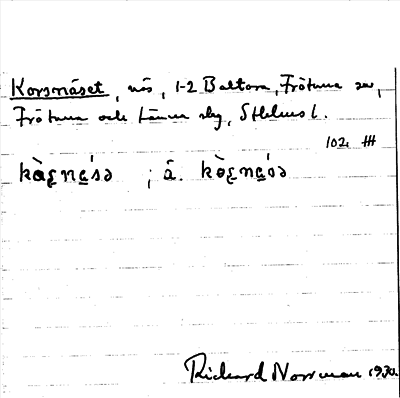 Korsnäset, näs, 1-2 Baltora, Frötuna sn,
Frötuna och Länna skg, Sthlms l.
102. HH
kòʂnæ̀sə ; ä. kòʂnæ̀sə
Richard Norrman 1930.